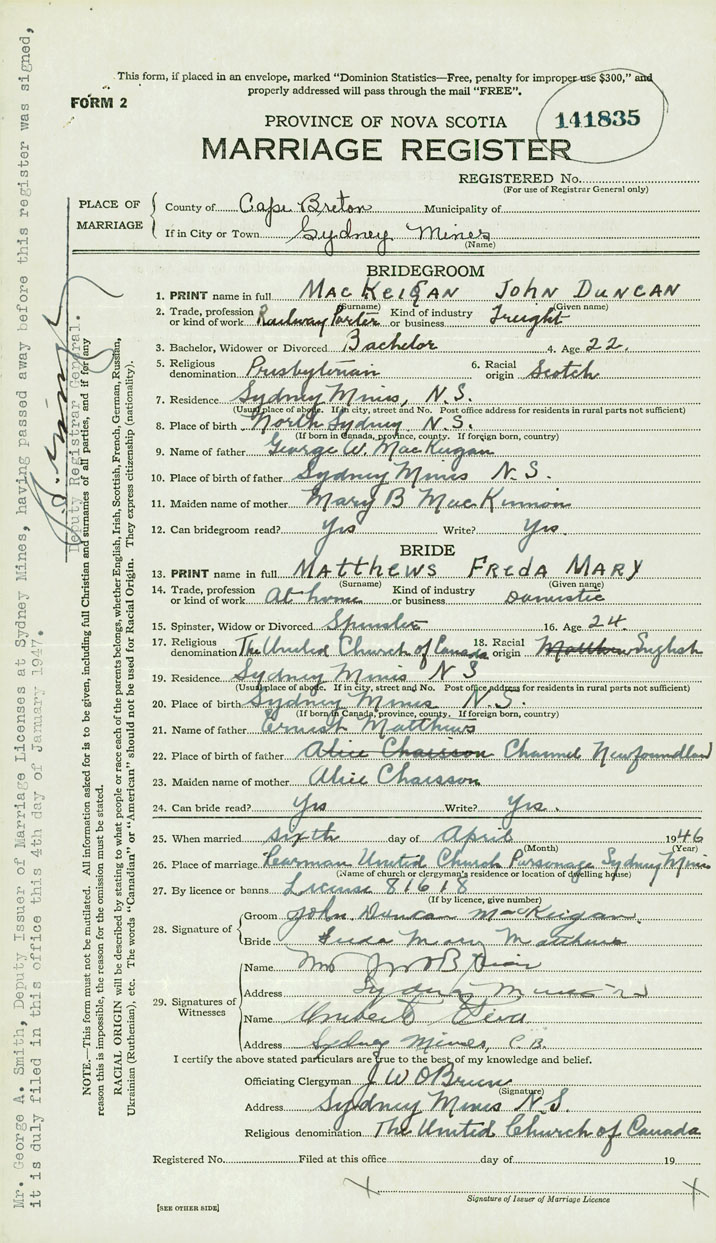 This form, if placed in an envelope, marked "Dominion Statistics—Free, penalty for improper use $300," and
properly addressed will pass through the mail "FREE".
FORM 2
141835
PROVINCE OF NOVA SCOTIA
MARRIAGE REGISTER
REGISTERED No.
(For use of Registrar General only)
PLACE OF MARRIAGE
County of Cape Breton Municipality of
If in City or Town Sydney Mines
(Name)
BRIDEGROOM
1. PRINT name in full MacKeigan John Duncan
(Surname) (Given name)
2. Trade, profession or kind of work Railway Porter Kind of industry or business Freight
3. Bachelor, Widower or Divorced Bachelor 4. Age 22.
5. Religious denomination Presbyterian 6. Racial origin Scotch
7. Residence Sydney Mines, N.S.
(Usual place of above. If in city, street and No. Post office address for residents in rural parts not sufficient)
8. Place of birth North Sydney N.S.
(If born in Canada, province, county. If foreign born, country)
9. Name of father George W. MacKeigan
10. Place of birth of father Sydney Mines N.S.
11. Maiden name of mother Mary B MacKinnon
12. Can bridegroom read? Yes Write? Yes.
BRIDE
13. PRINT name in full Matthews Freda Mary
(Surname) (Given name)
14. Trade, profession or kind of work At home Kind of industry or business Domestic
15. Spinster, Widow or Divorced Spinster 16. Age 24
17. Religious denomination The United Church of Canada 18. Racial origin English
19. Residence Sydney Mines N S
(Usual place of above. If in city, street and No. Post office address for residents in rural parts not sufficient)
20. Place of birth Sydney Mines N.S.
(If born in Canada, province, county. If foreign born, country)
21. Name of father Ernest Matthews
22. Place of birth of father Alice Chaisson Channel Newfoundland
23. Maiden name of mother Alice Chaisson
24. Can bride read? Yes Write? Yes.
25. When married sixth day of April 1946
(Month) (Year)
26. Place of marriage Carman United Church Parsonage Sydney Mines
(Name of church or clergyman's residence or location of dwelling house)
27. By licence or banns License 81618
(If by licence, give number)
28. Signature of
Groom John Duncan MacKeigan.
Bride Freda Mary Matthews
29. Signatures of Witnesses
Name Mrs J W O'Brien
Address Sydney Mines N S
Name
Address Sydney Mines, C.B.
I certify the above stated particulars are true to the best of my knowledge and belief.
Officiating Clergyman J W O'Brien
(Signature)
Address Sydney Mines N.S.
Religious denomination The United Church of Canada
Registered No. Filed at this office day of 19
X X
Signature of Issuer of Marriage Licence
[SEE OTHER SIDE]
NOTE.—This form must not be mutilated. All information asked for is to be given, including full Christian and surnames of all parties, and if for any
reason this is impossible, the reason for the omission must be stated.
RACIAL ORIGIN will be described by stating to what people or race each of the parents belongs, whether English, Irish, Scottish, French, German, Russian,
Ukrainian (Ruthenian), etc. The words "Canadian" or "American" should not be used for Racial Origin. They express citizenship (nationality).
Mr. George A. Smith, Deputy Issuer of Marriage Licenses at Sydney Mines, having passed away before this register was signed,
it is duly filed in this office this 4th day of January 1947.
Deputy Registrar General.